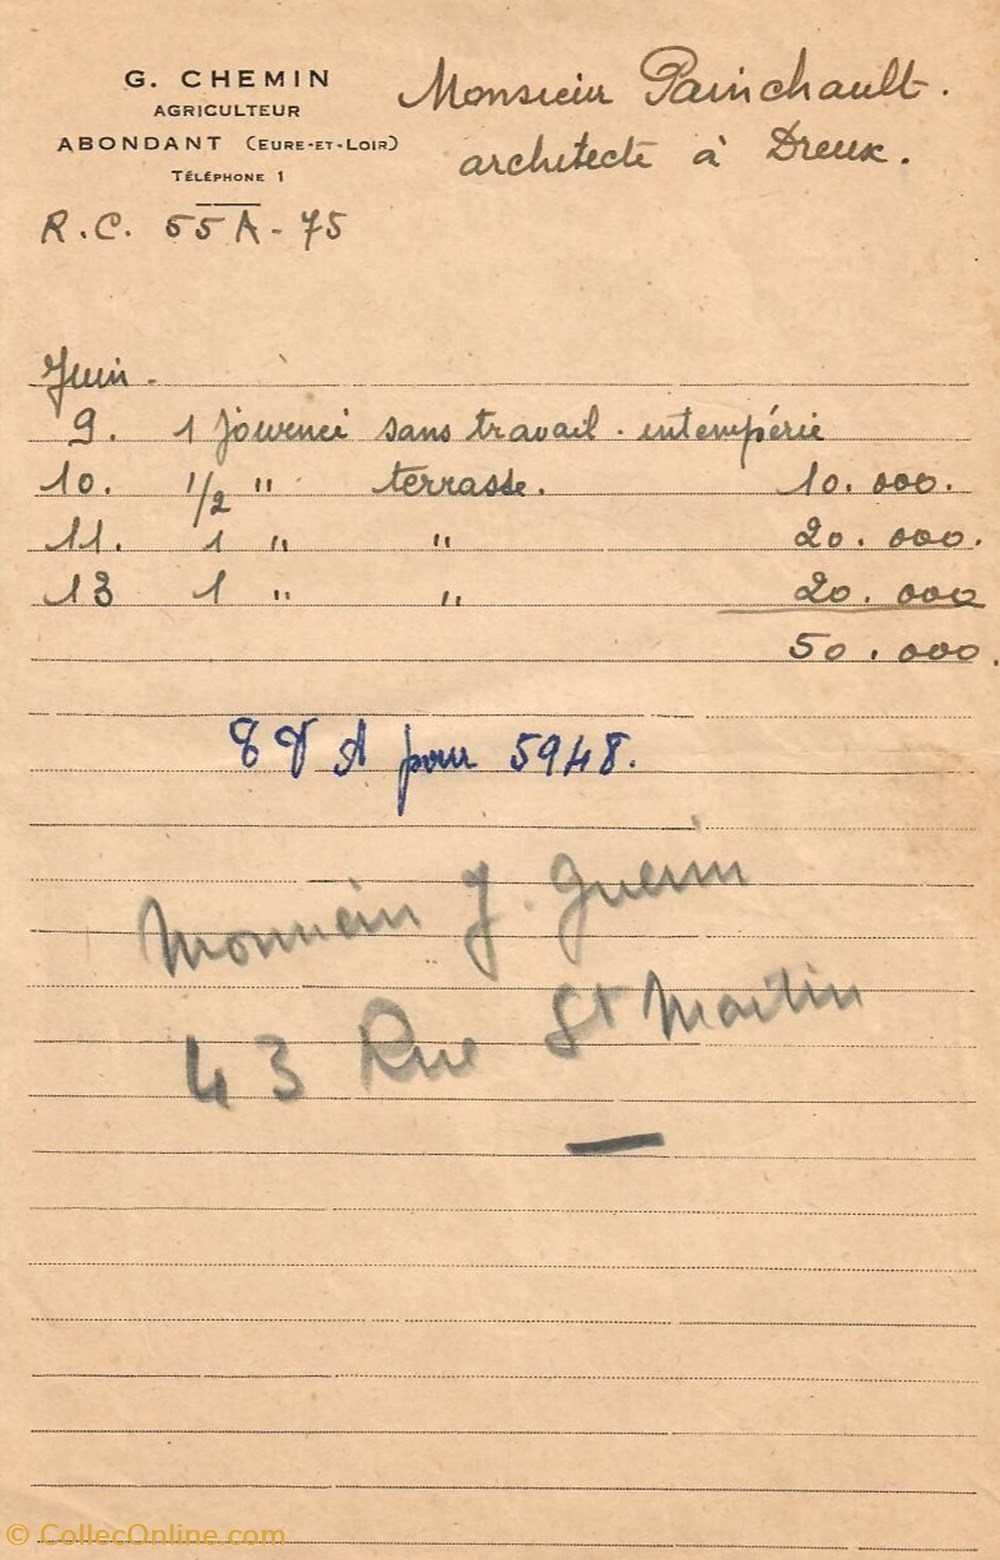 G. CHEMIN
AGRICULTEUR
ABONDANT (EURE-ET-LOIR)
TÉLÉPHONE 1
R.C. 55 A - 75
Monsieur Painchault.
architecte à Dreux.
Juin.
9. 1 journeé sans travail. intempérie
10. 1/2 " terrasse. 10.000.
11. 1 " " 20.000.
13 1 " " 20.000
50.000.
pour 5948.
Monsieur J. Guerin
43 Rue St Martin
© CollecOnline.com